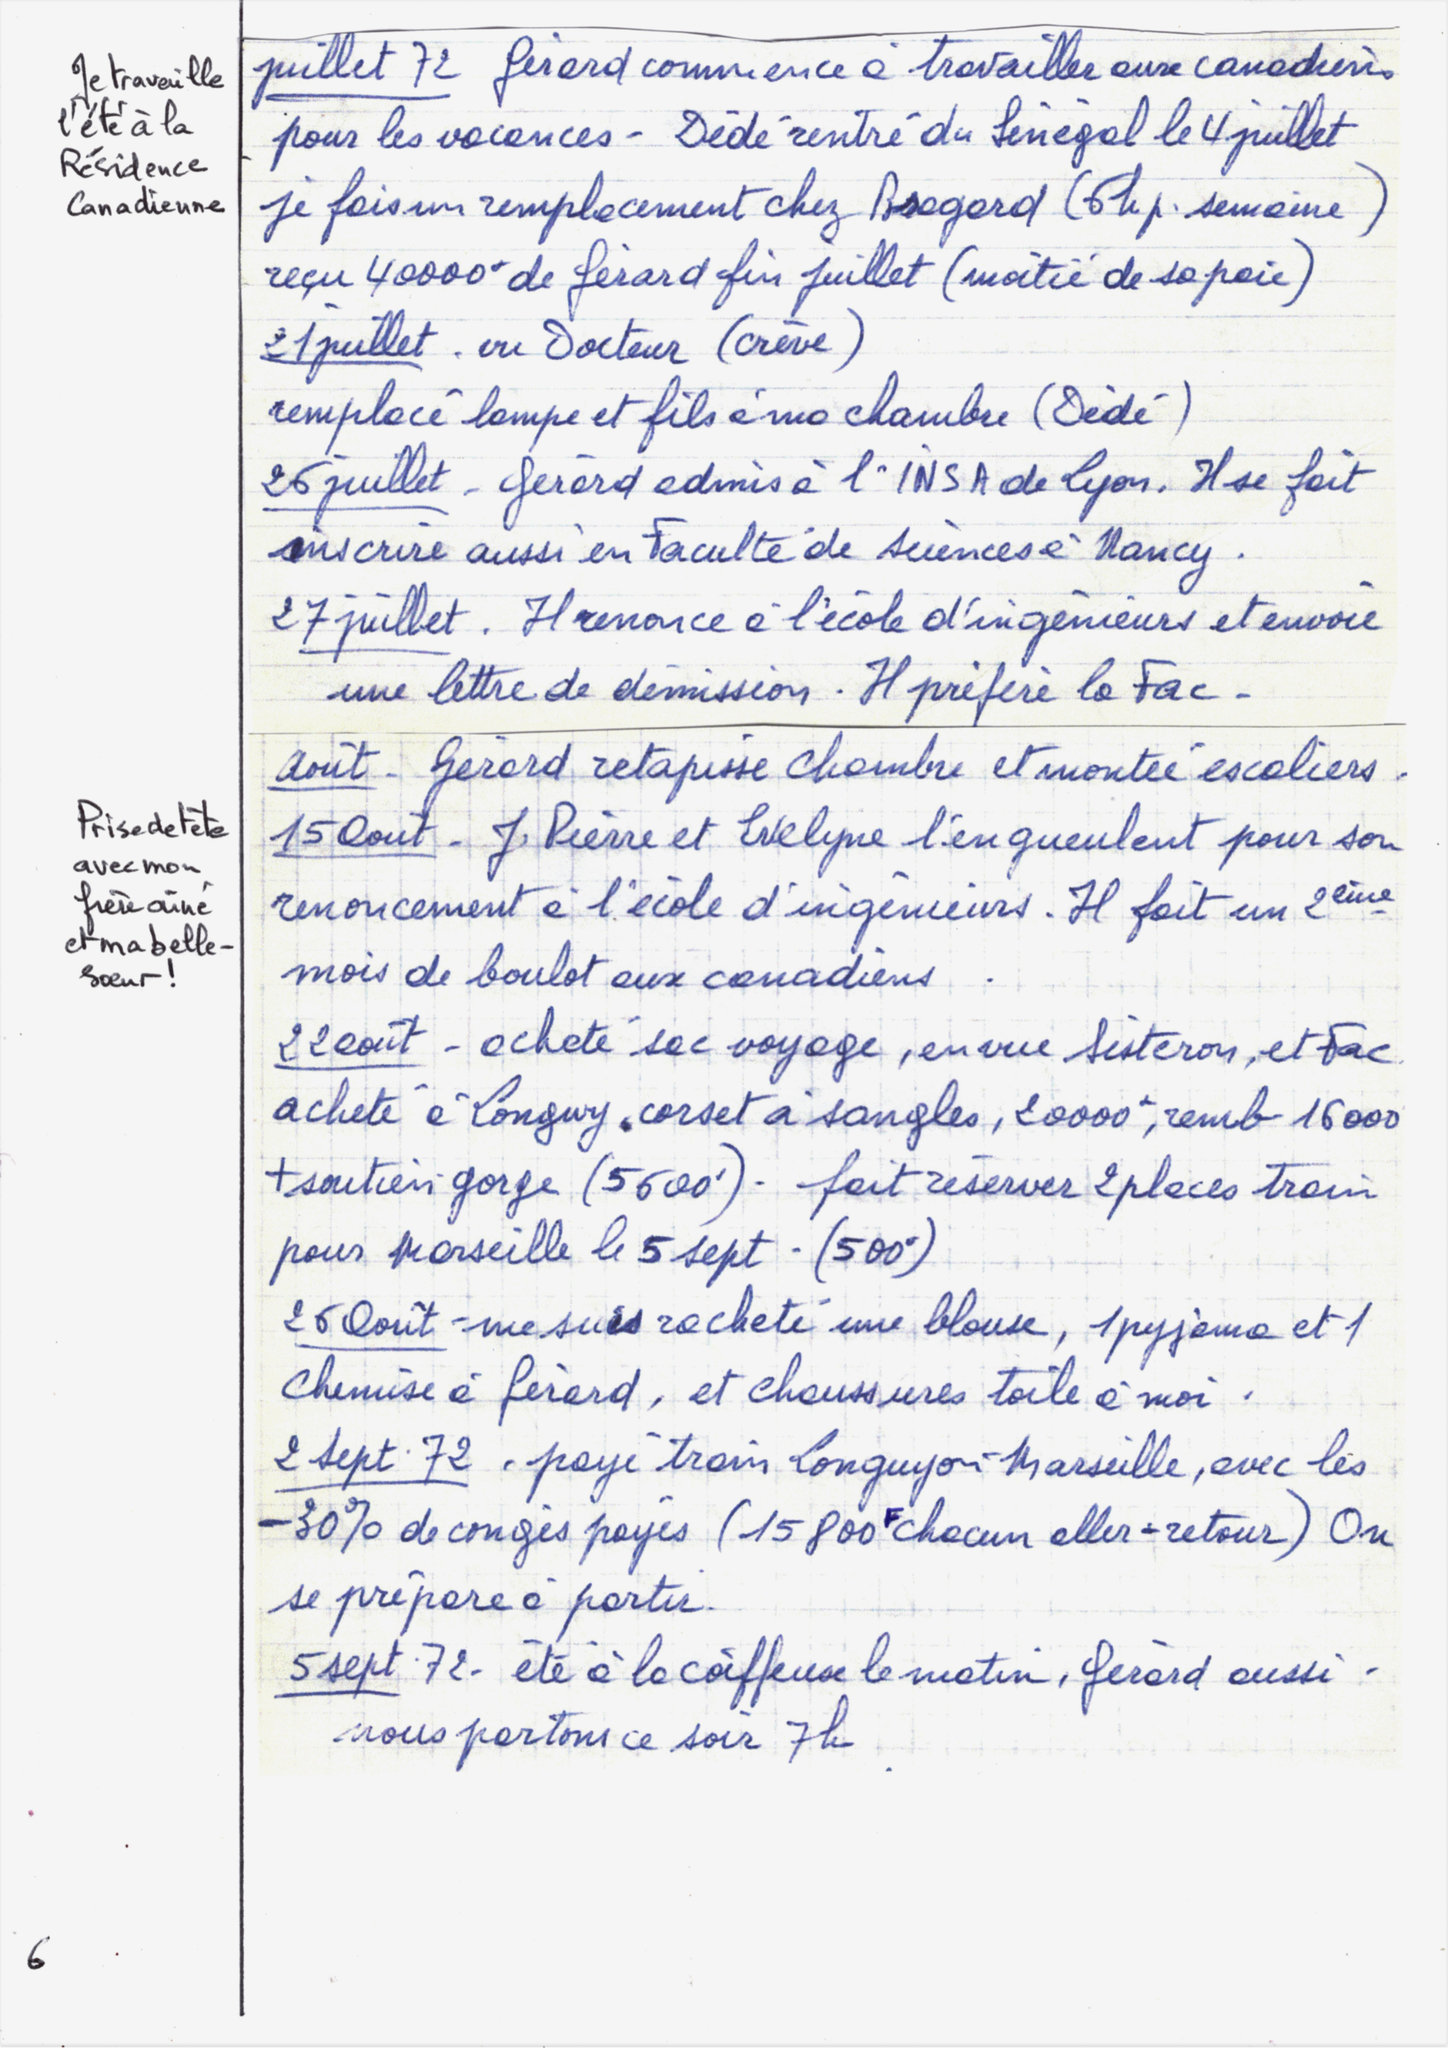 Je travaille
l'été à la
Résidence
Canadienne
juillet 72 Gérard commence à travailler aux canadiens
pour les vacances - Dédé rentré du Sénégal le 4 juillet
je fais un remplacement chez (6h p. semaine)
reçu 40000° de Gérard fin juillet (moitié de sa paie)
21 juillet. vu Docteur (crève)
remplacé lampe et fils à ma chambre (Dédé)
26 juillet - Gérard admis à l'INSA de Lyon. Il se fait
inscrire aussi en Faculté de Sciences à Nancy.
27 juillet. Il renonce à l'école d'ingénieurs et envoie
une lettre de démission. Il préfère la Fac -
Août - Gérard retapisse chambre et montée escaliers.
Prise de tête
avec mon
frère aîné
et ma belle-
soeur !
15 Août - J. Pierre et Evelyne l'engueulent pour son
renoncement à l'école d'ingénieurs. Il fait un 2ème
mois de boulot aux canadiens.
22 août - acheté sac voyage, en vue Sisteron, et Fac
acheté à Longwy. corset à sangles, 20000°, remb 16000
+ soutien gorge (5600°) - fait réserver 2 places train
pour Marseille le 5 sept - (500°)
26 Août - me suis racheté une blouse, 1 pyjama et 1
chemise à Gérard, et chaussures toile à moi.
2 Sept. 72. payé train Longuyon-Marseille, avec les
-30% de congés payés (15800F chacun aller-retour) On
se prépare à partir.
5 sept. 72 - été à la coiffeuse le matin, Gérard aussi -
nous partons ce soir 7h
6